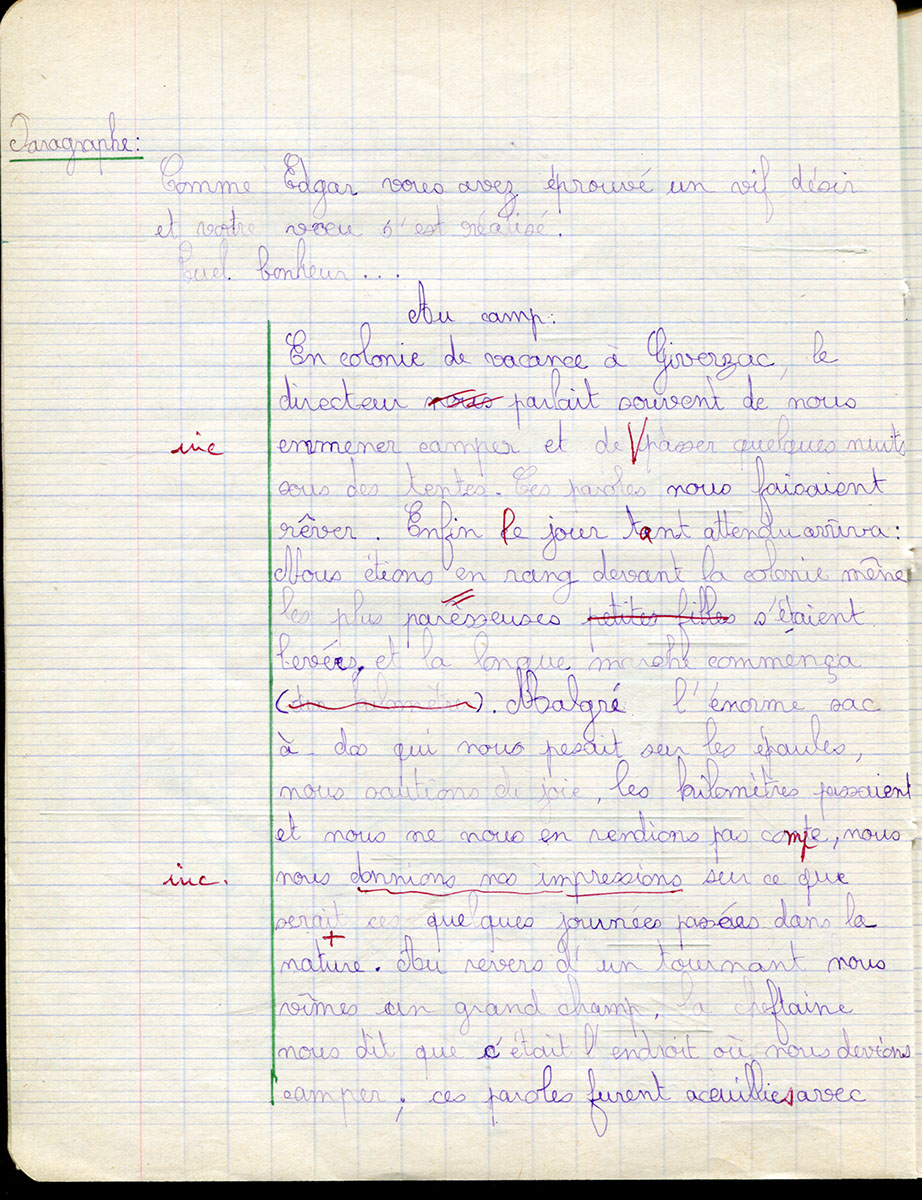 Paragraphe:
Comme Edgar vous avez éprouvé un vif désir
et votre vœu s'est réalisé.
Quel bonheur ....
Au camp:
En colonie de vacance à Giverzac, le
directeur nous parlait souvent de nous
inc emmener camper et de passer quelques nuits
sous des tentes. Ces paroles nous faisaient
rêver. Enfin le jour tant attendu arriva:
Nous étions en rang devant la colonie même
les plus paresseuses petites filles s'étaient
levées, et la longue marche commença
(kilomètres). Malgré l'énorme sac
à dos qui nous pesait sur les épaules,
nous sautions de joie, les kilomètres passaient
et nous ne nous en rendions pas compte, nous
inc. nous donnions nos impressions sur ce que
serait ces quelques journées passées dans la
nature. Au revers d'un tournant nous
vîmes un grand champ, la cheftaine
nous dit que c'était l'endroit où nous devions
camper; ces paroles furent aceuillies avec